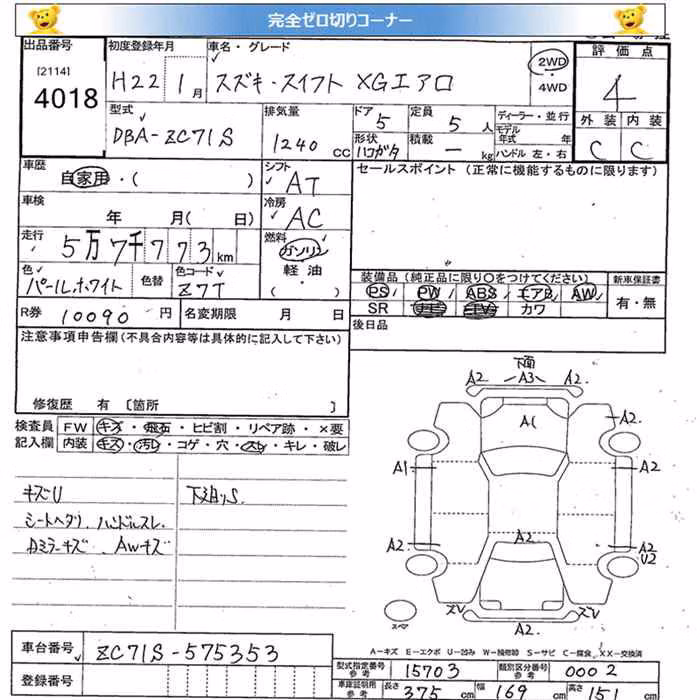 完全ゼロ切りコーナー
出品番号 [2114] 4018
初度登録年月 H22 1月
車名・グレード スズキ・スイフト XGエアロ
2WD・4WD
評価点 4
外装 内装
C C
型式 DBA-ZC71S
排気量 1240 CC
ドア 5 定員 5 人
形状 ハコガタ 積載 ー kg
ディーラー・並行
モデル年式 年
ハンドル 左・右
車歴 自家用・( )
シフト AT
セールスポイント (正常に機能するものに限ります)
車検 年 月( 日)
冷房 AC
走行 5万7千773km
燃料 ガソリン 軽油 ・( )
色 パールホワイト 色替 色コード Z7T
装備品 (純正品に限り○をつけてください)
新車保証書 有・無
PS PW ABS エアB AW
SR カワ
R券 10090円 名変期限 月 日
後日品
注意事項申告欄 (不具合内容等は具体的に記入して下さい)
修復歴 有 [箇所 ]
検査員記入欄
FW キズ・飛石・ヒビ割・リペア跡・×要
内装 キズ・汚レ・コゲ・穴・スレ・キレ・破レ
キズU
シートヘタリ、ハンドルスレ
Dミラーキズ AWキズ
下廻りS
下面
A2 A3 A2
A1 A2
A1 A2
A2 A2 A2
U2
ズV ズV
A2
スペア
A-キズ E-エクボ U-凹み W-補修跡 S-サビ C-腐食 XX-交換済
車台番号 ZC71S-575353
登録番号
型式指定番号 参考 15703 類別区分番号 参考 0002
車庫証明用 参考 長さ 375 cm 幅 169 cm 高さ 151 cm